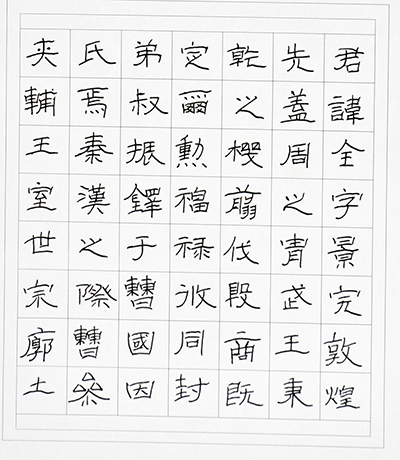 君諱全字景完敦煌
先蓋周之胄武王秉
乾之機翦伐殷商既
定爾勳福祿攸同封
弟叔振鐸于曹國因
氏焉秦漢之際曹參
夾輔王室世宗廓土